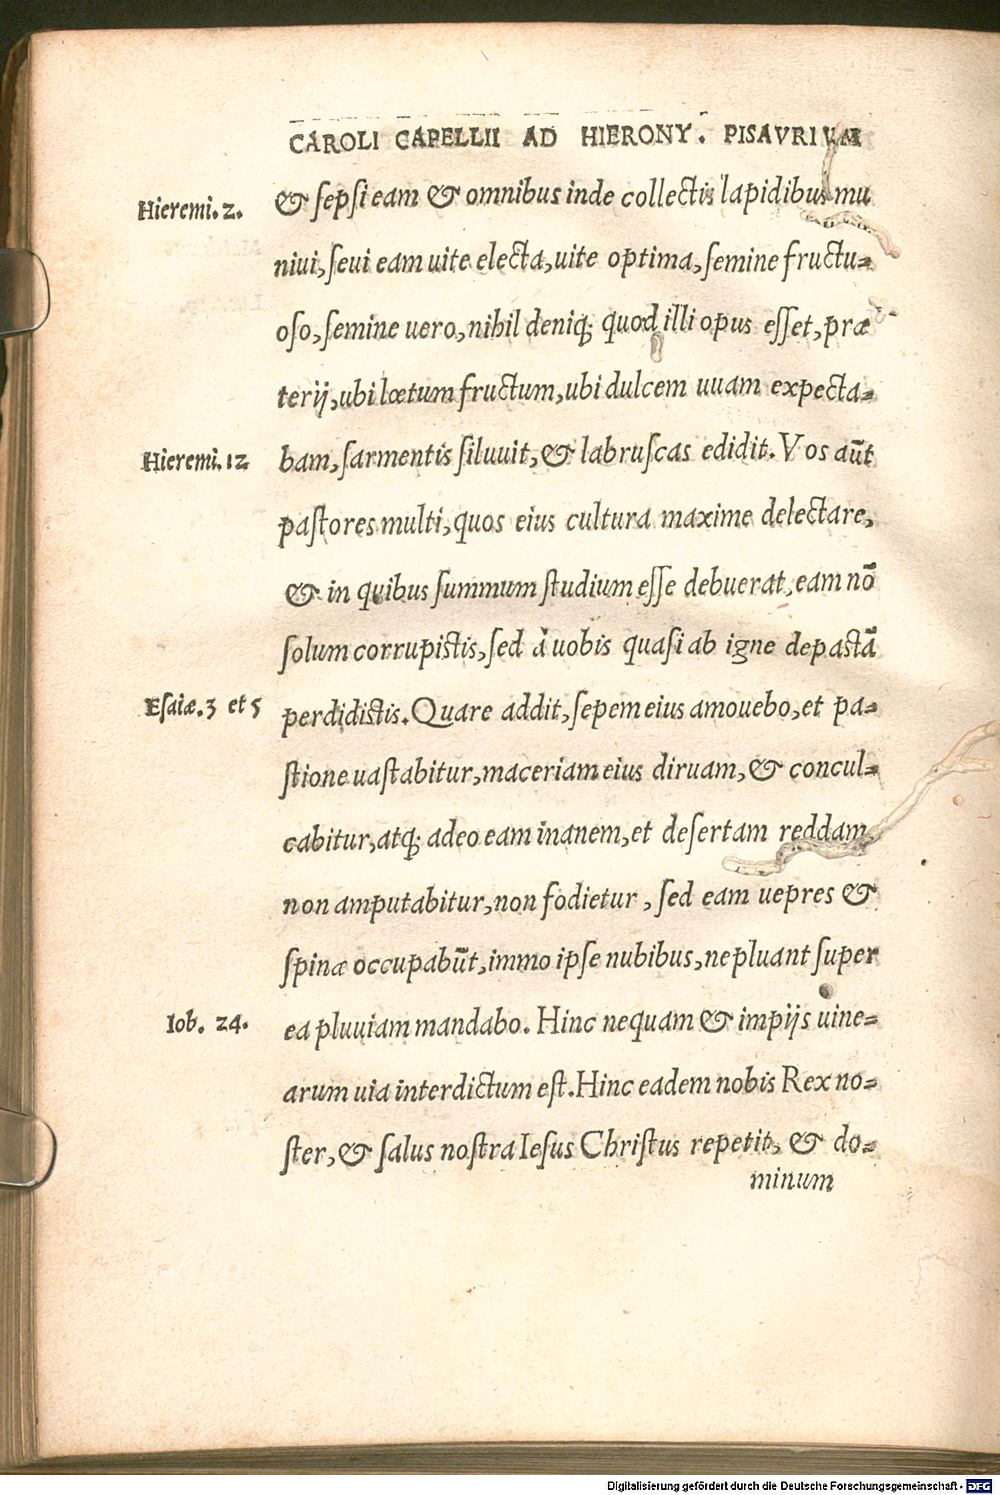 CAROLI CAPELLII AD HIERONY. PISAVRIVM
Hieremi. 2.
& sepsi eam & omnibus inde collectis lapidibus mu
niui, seui eam uite electa, uite optima, semine fructu-
oso, semine uero, nihil deniq; quod illi opus esset, præ
terij, ubi lœtum fructum, ubi dulcem uuam expecta-
Hieremi. 12
bam, sarmentis siluuit, & labruscas edidit. Vos aūt
pastores multi, quos eius cultura maxime delectare,
& in quibus summum studium esse debuerat, eam nō
solum corrupistis, sed à uobis quasi ab igne depastā
Esaiæ. 3 et 5
perdidistis. Quare addit, sepem eius amouebo, et pa-
stione uastabitur, maceriam eius diruam, & concul-
cabitur, atq; adeo eam inanem, et desertam reddam,
non amputabitur, non fodietur, sed eam uepres &
spinæ occupabūt, immo ipse nubibus, ne pluant super
Iob. 24.
ea pluuiam mandabo. Hinc nequam & impijs uine-
arum uia interdictum est. Hinc eadem nobis Rex no-
ster, & salus nostra Iesus Christus repetit, & do-
minum
Digitalisierung gefördert durch die Deutsche Forschungsgemeinschaft - DFG